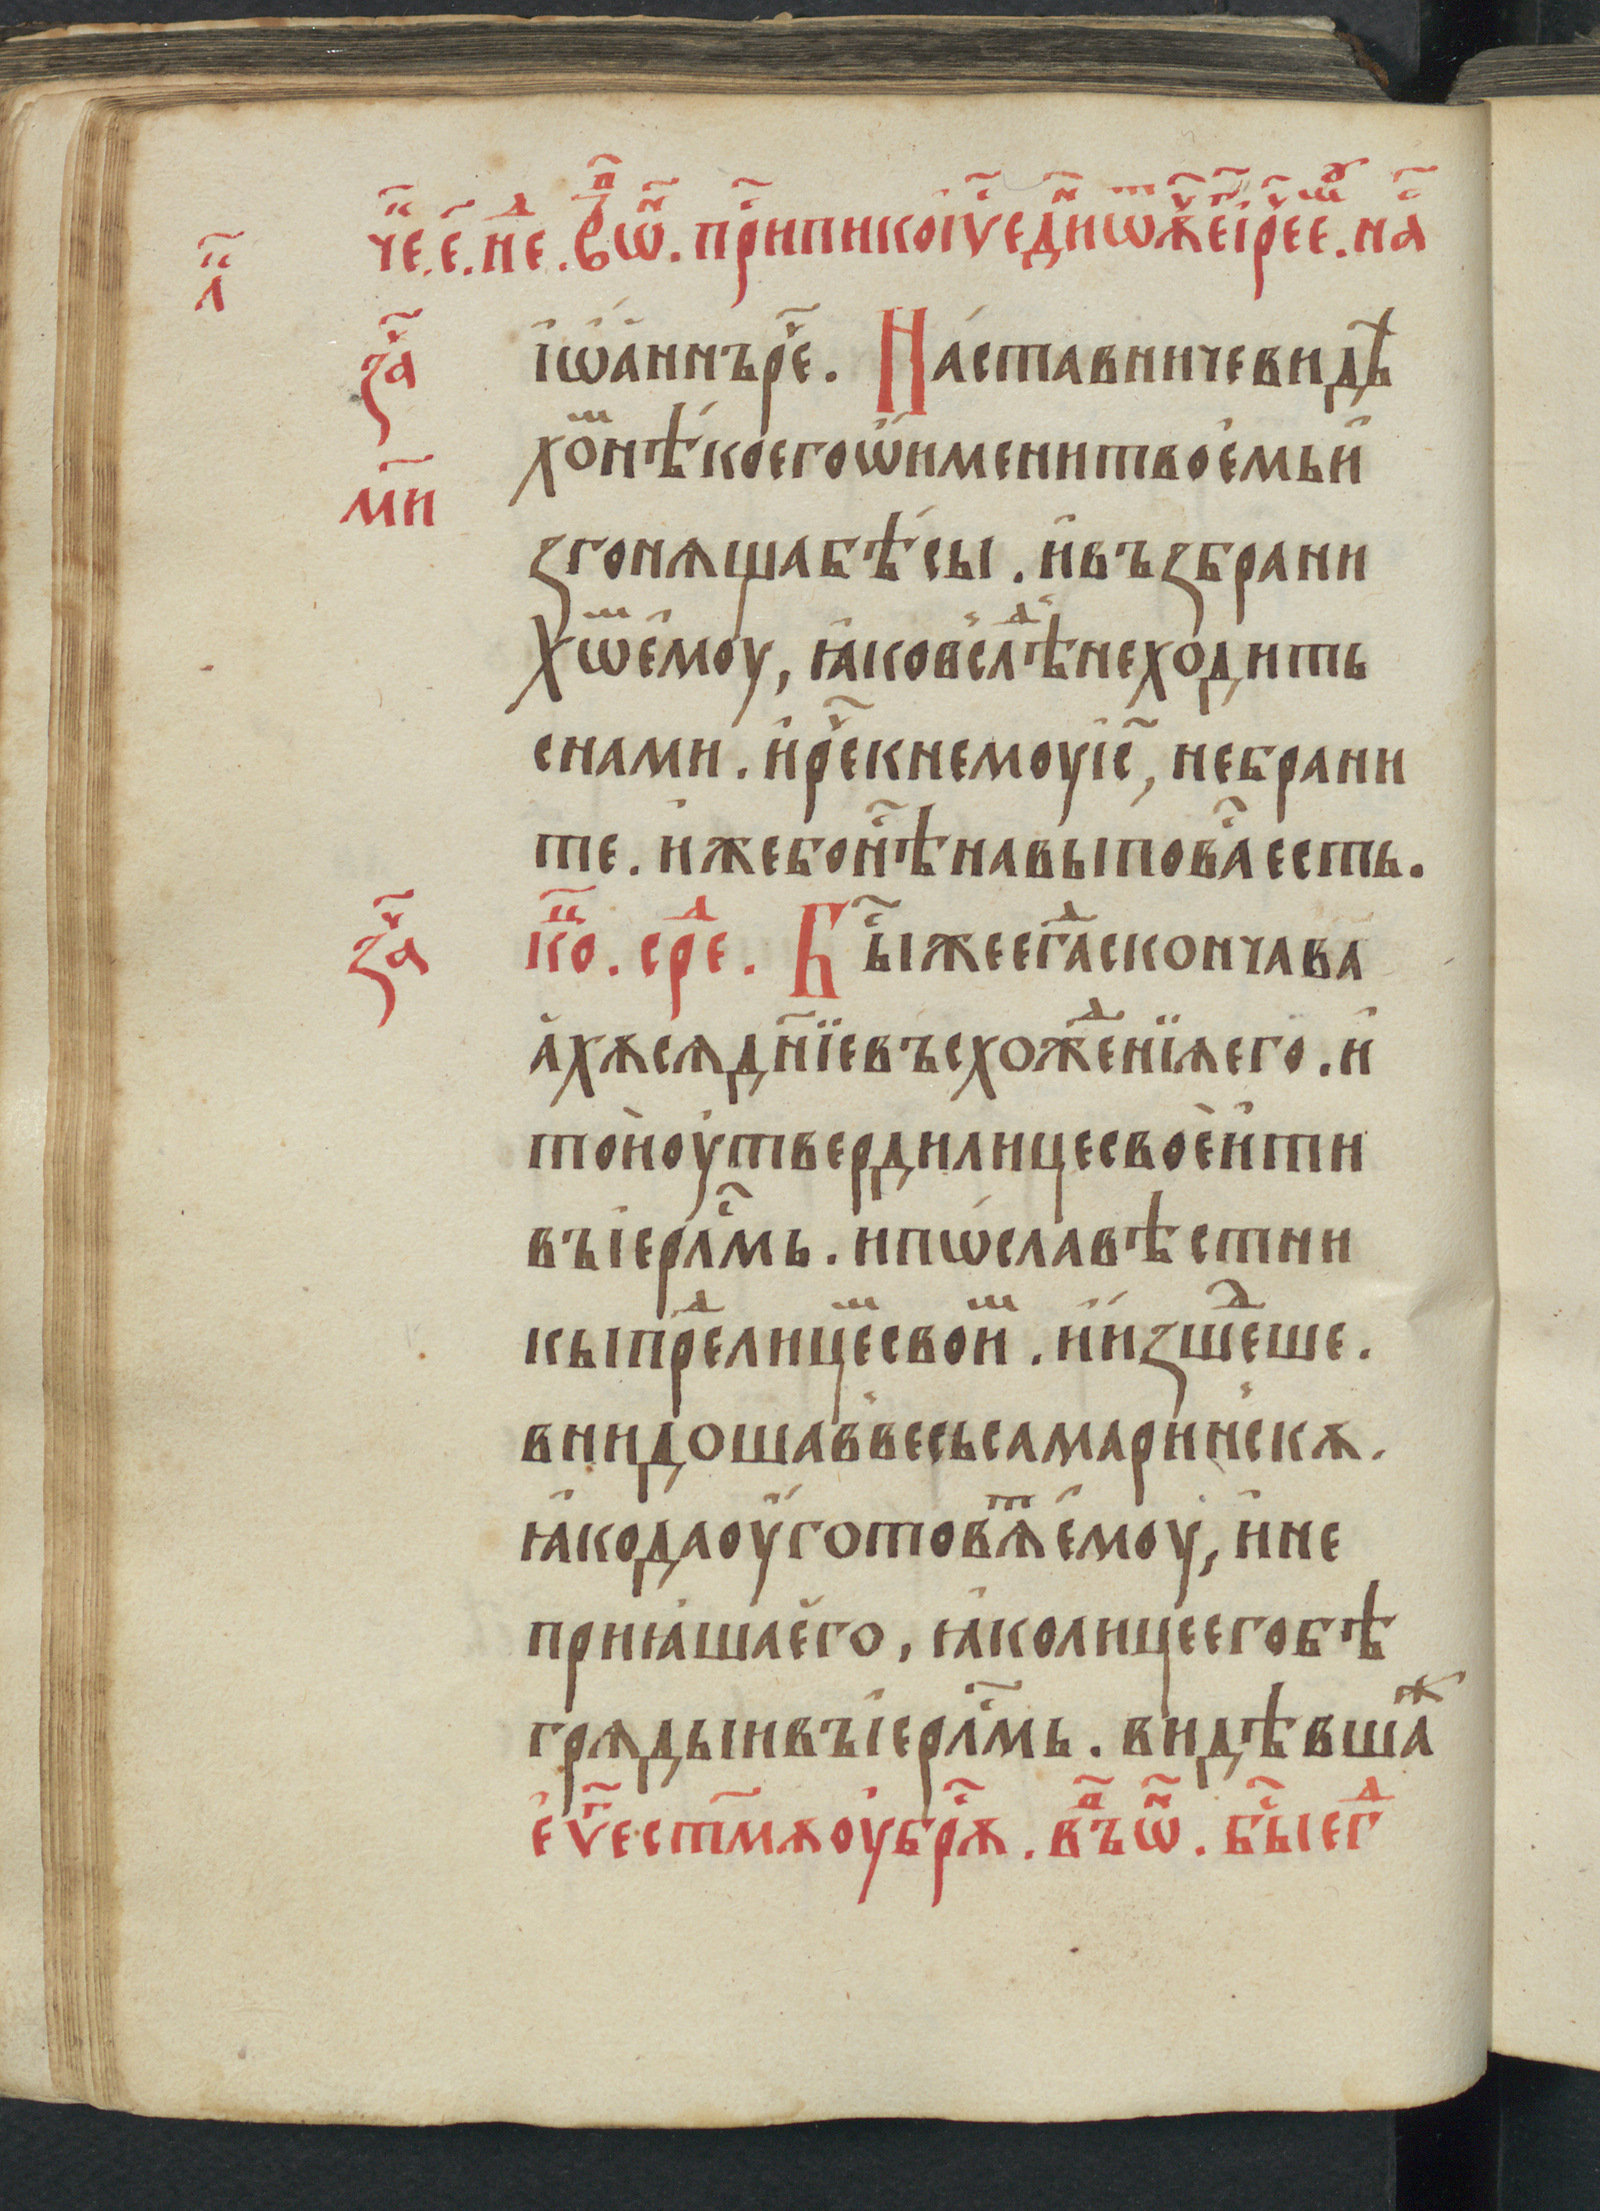 че҃к. е҃. нед҇. в҃ъѡ҃н. прі҃ипикоі҆ч҃единѿꙋ҃че҃ірече. на҃с
л҃п
за҃ч
і҆ѡ҆а́ннъре҃ч. На́ставничевидѣ
хѡⷨнѣ́коегоѡ҆и҆менитвое҆мьи҆
м҃и
згонѧщабѣ́сы. и҆възбрани
хѡⷨе҆моу, ꙗ҆ковслѣⷣнеходить
снами. и҆ре҃чкнемоуі҆с҃, небрани
те. и҆жебон҃ѣснавыпова҃сесть.
за҃ч
ко҃н. среⷣ. Бы҃сжеегⷣаскончава
а҆хѫсѧдн҃їевъсхожⷣенїꙗего. и҆
то́и҆оу҆твердилицесвоѐи҆ти
въі҆ерⷭ҇лмь. ипѡ́славѣстни
кыпреⷣлицеⷨсвоиⷨ. и҆и҆зшеⷣше.
внидошаввесьсамаринскѫ.
ꙗ҆кодаоу҆готовѧⷮе҆моу, и҆не
приꙗ҆шаего, ꙗ҆колицеегобѣ
грѧдыивъі҆ерⷭ҇лмь. видѣвшаⷤ